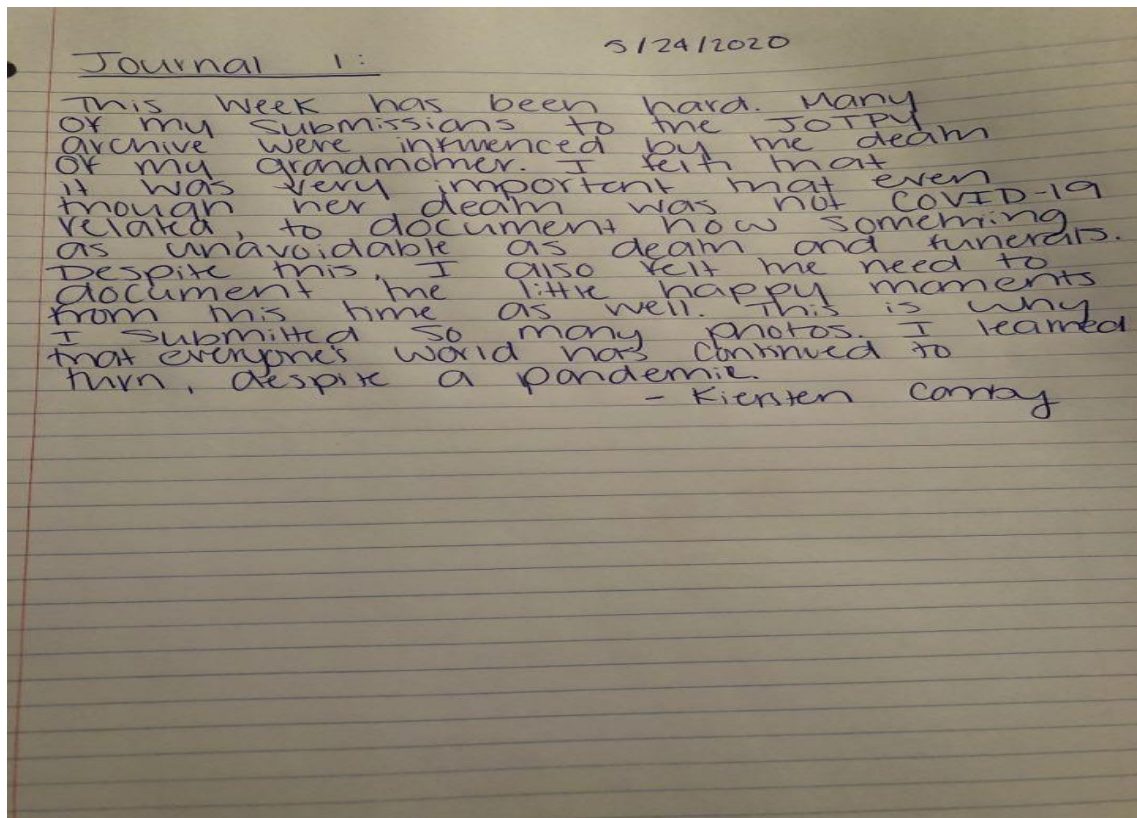 Journal 1:
5/24/2020
This week has been hard. Many
of my submissions to the JOTPY
archive were influenced by the death
of my grandmother. I felt that
it was very important that even
though her death was not COVID-19
related, to document how something
as unavoidable as death and funerals.
Despite this, I also felt the need to
document the little happy moments
from this time as well. This is why
I submitted so many photos. I learned
that everyone's world has continued to
turn, despite a pandemic.
- Kiersten